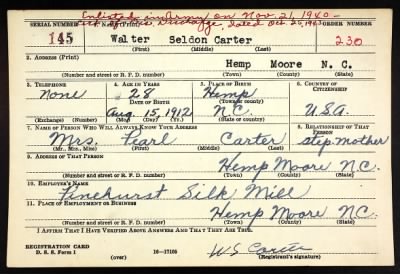 Enlisted in Army on Nov. 21, 1940 -
Discharge, dated Oct 25, 1943
SERIAL NUMBER 1. NAME (Print) ORDER NUMBER
145 Walter Seldon Carter 230
(First) (Middle) (Last)
2. ADDRESS (Print)
Hemp Moore N. C.
(Number and street or R. F. D. number) (Town) (County) (State)
3. TELEPHONE 4. AGE IN YEARS 5. PLACE OF BIRTH 6. COUNTRY OF CITIZENSHIP
None 28 Hemp
DATE OF BIRTH (Town or county)
Aug. 15, 1912 N.C. U.S.A.
(Exchange) (Number) (Mo.) (Day) (Yr.) (State or country)
7. NAME OF PERSON WHO WILL ALWAYS KNOW YOUR ADDRESS 8. RELATIONSHIP OF THAT PERSON
Mrs. Pearl Carter step. mother
(Mr., Mrs., Miss) (First) (Middle) (Last)
9. ADDRESS OF THAT PERSON
Hemp Moore N.C.
(Number and street or R. F. D. number) (Town) (County) (State)
10. EMPLOYER'S NAME
Pinehurst Silk Mill
11. PLACE OF EMPLOYMENT OR BUSINESS
Hemp Moore N.C.
(Number and street or R. F. D. number) (Town) (County) (State)
I AFFIRM THAT I HAVE VERIFIED ABOVE ANSWERS AND THAT THEY ARE TRUE.
REGISTRATION CARD
D. S. S. Form 1 16-17105 W S Carter
(over) (Registrant's signature)